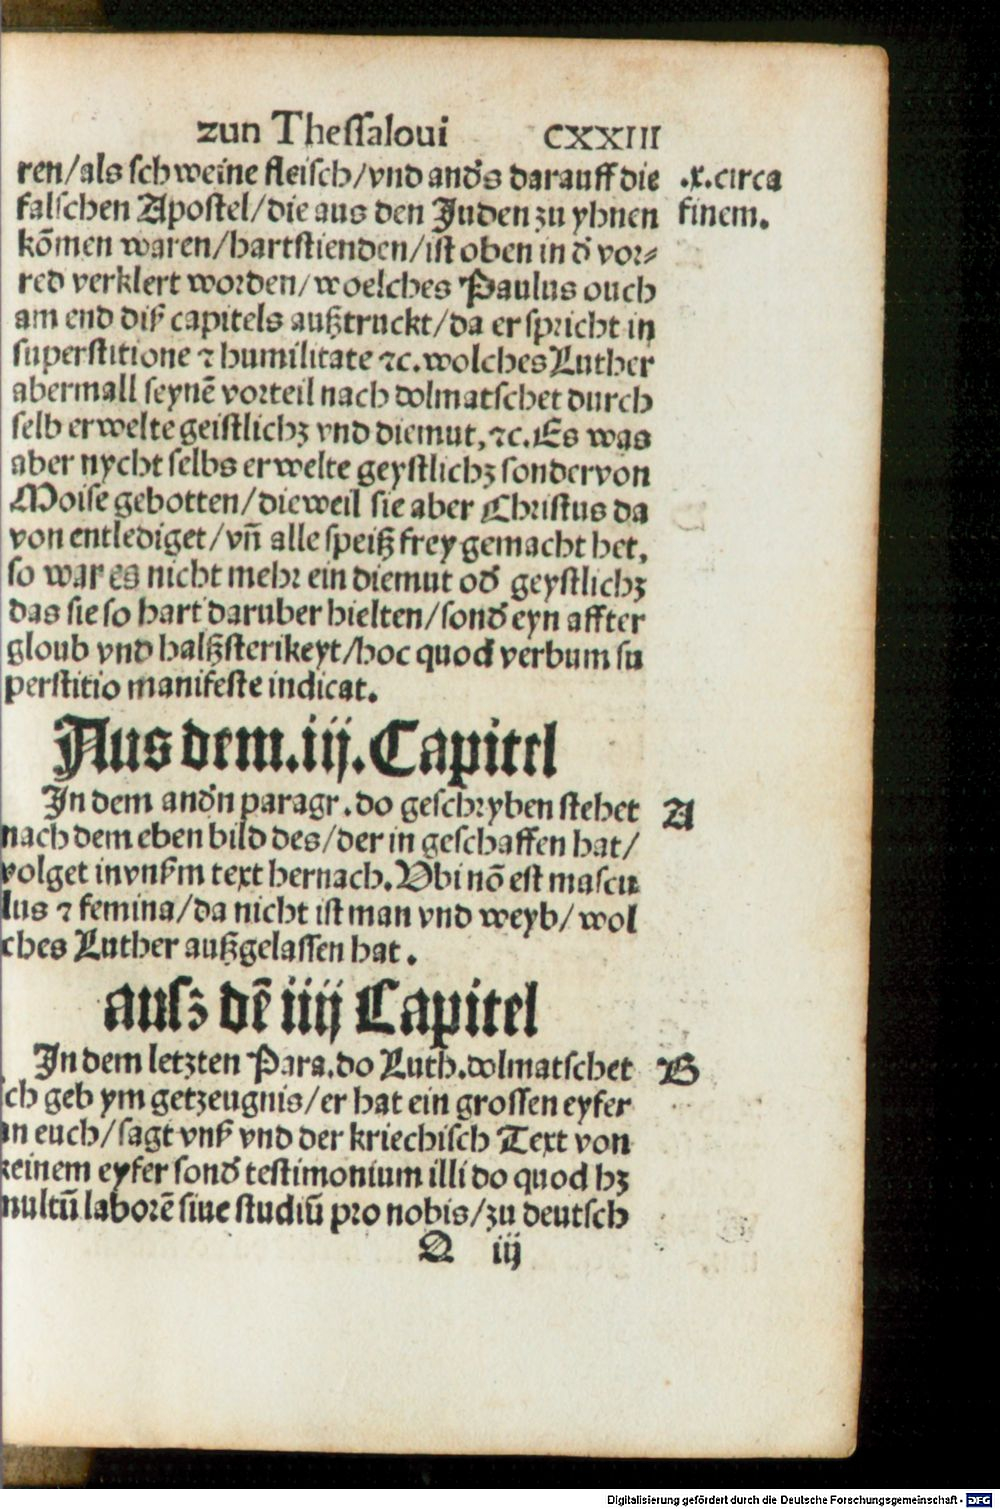 zun Thessaloui CXXIII
ren/als schweine fleisch/vnd andˀs darauff die .x.circa
falschen Apostel/die aus den Juden zu yhnen finem.
kōmen waren/hartstienden/ist oben in dˀ vor⸗
red verklert worden/woelches Paulus ouch
am end diß capitels außtruckt/da er spricht in
superstitione ⁊ humilitate ⁊c.wolches Luther
abermall seynē vorteil nach dolmatschet durch
selb erwelte geistlichꝫ vnd diemut,⁊c.Es was
aber nycht selbs erwelte geystlichꝫ sondervon
Moise gebotten/dieweil sie aber Christus da
von entlediget/vn̄ alle speiß frey gemacht het,
so war es nicht mehr ein diemut odˀ geystlichꝫ
das sie so hart daruber hielten/sondˀ eyn affter
gloub vnd halßsterikeyt/hoc quod verbum su
perstitio manifeste indicat.
Aus dem.iij.Capitel
In dem andˀn paragr.do geschryben stehet A
nach dem eben bild des/der in geschaffen hat/
volget invnßm text hernach.Vbi nō est mascu
lus ⁊ femina/da nicht ist man vnd weyb/wol
ches Luther außgelassen hat.
ausz dē iiij Capitel
In dem letzten Para.do Luth.dolmatschet B
ch geb ym getzeugnis/er hat ein grossen eyfer
an euch/sagt vnß vnd der kriechisch Text von
keinem eyfer sondˀ testimonium illi do quod hꝫ
multū laborē siue studiū pro nobis/zu deutsch
Q iij
Digitalisierung gefördert durch die Deutsche Forschungsgemeinschaft - DFG